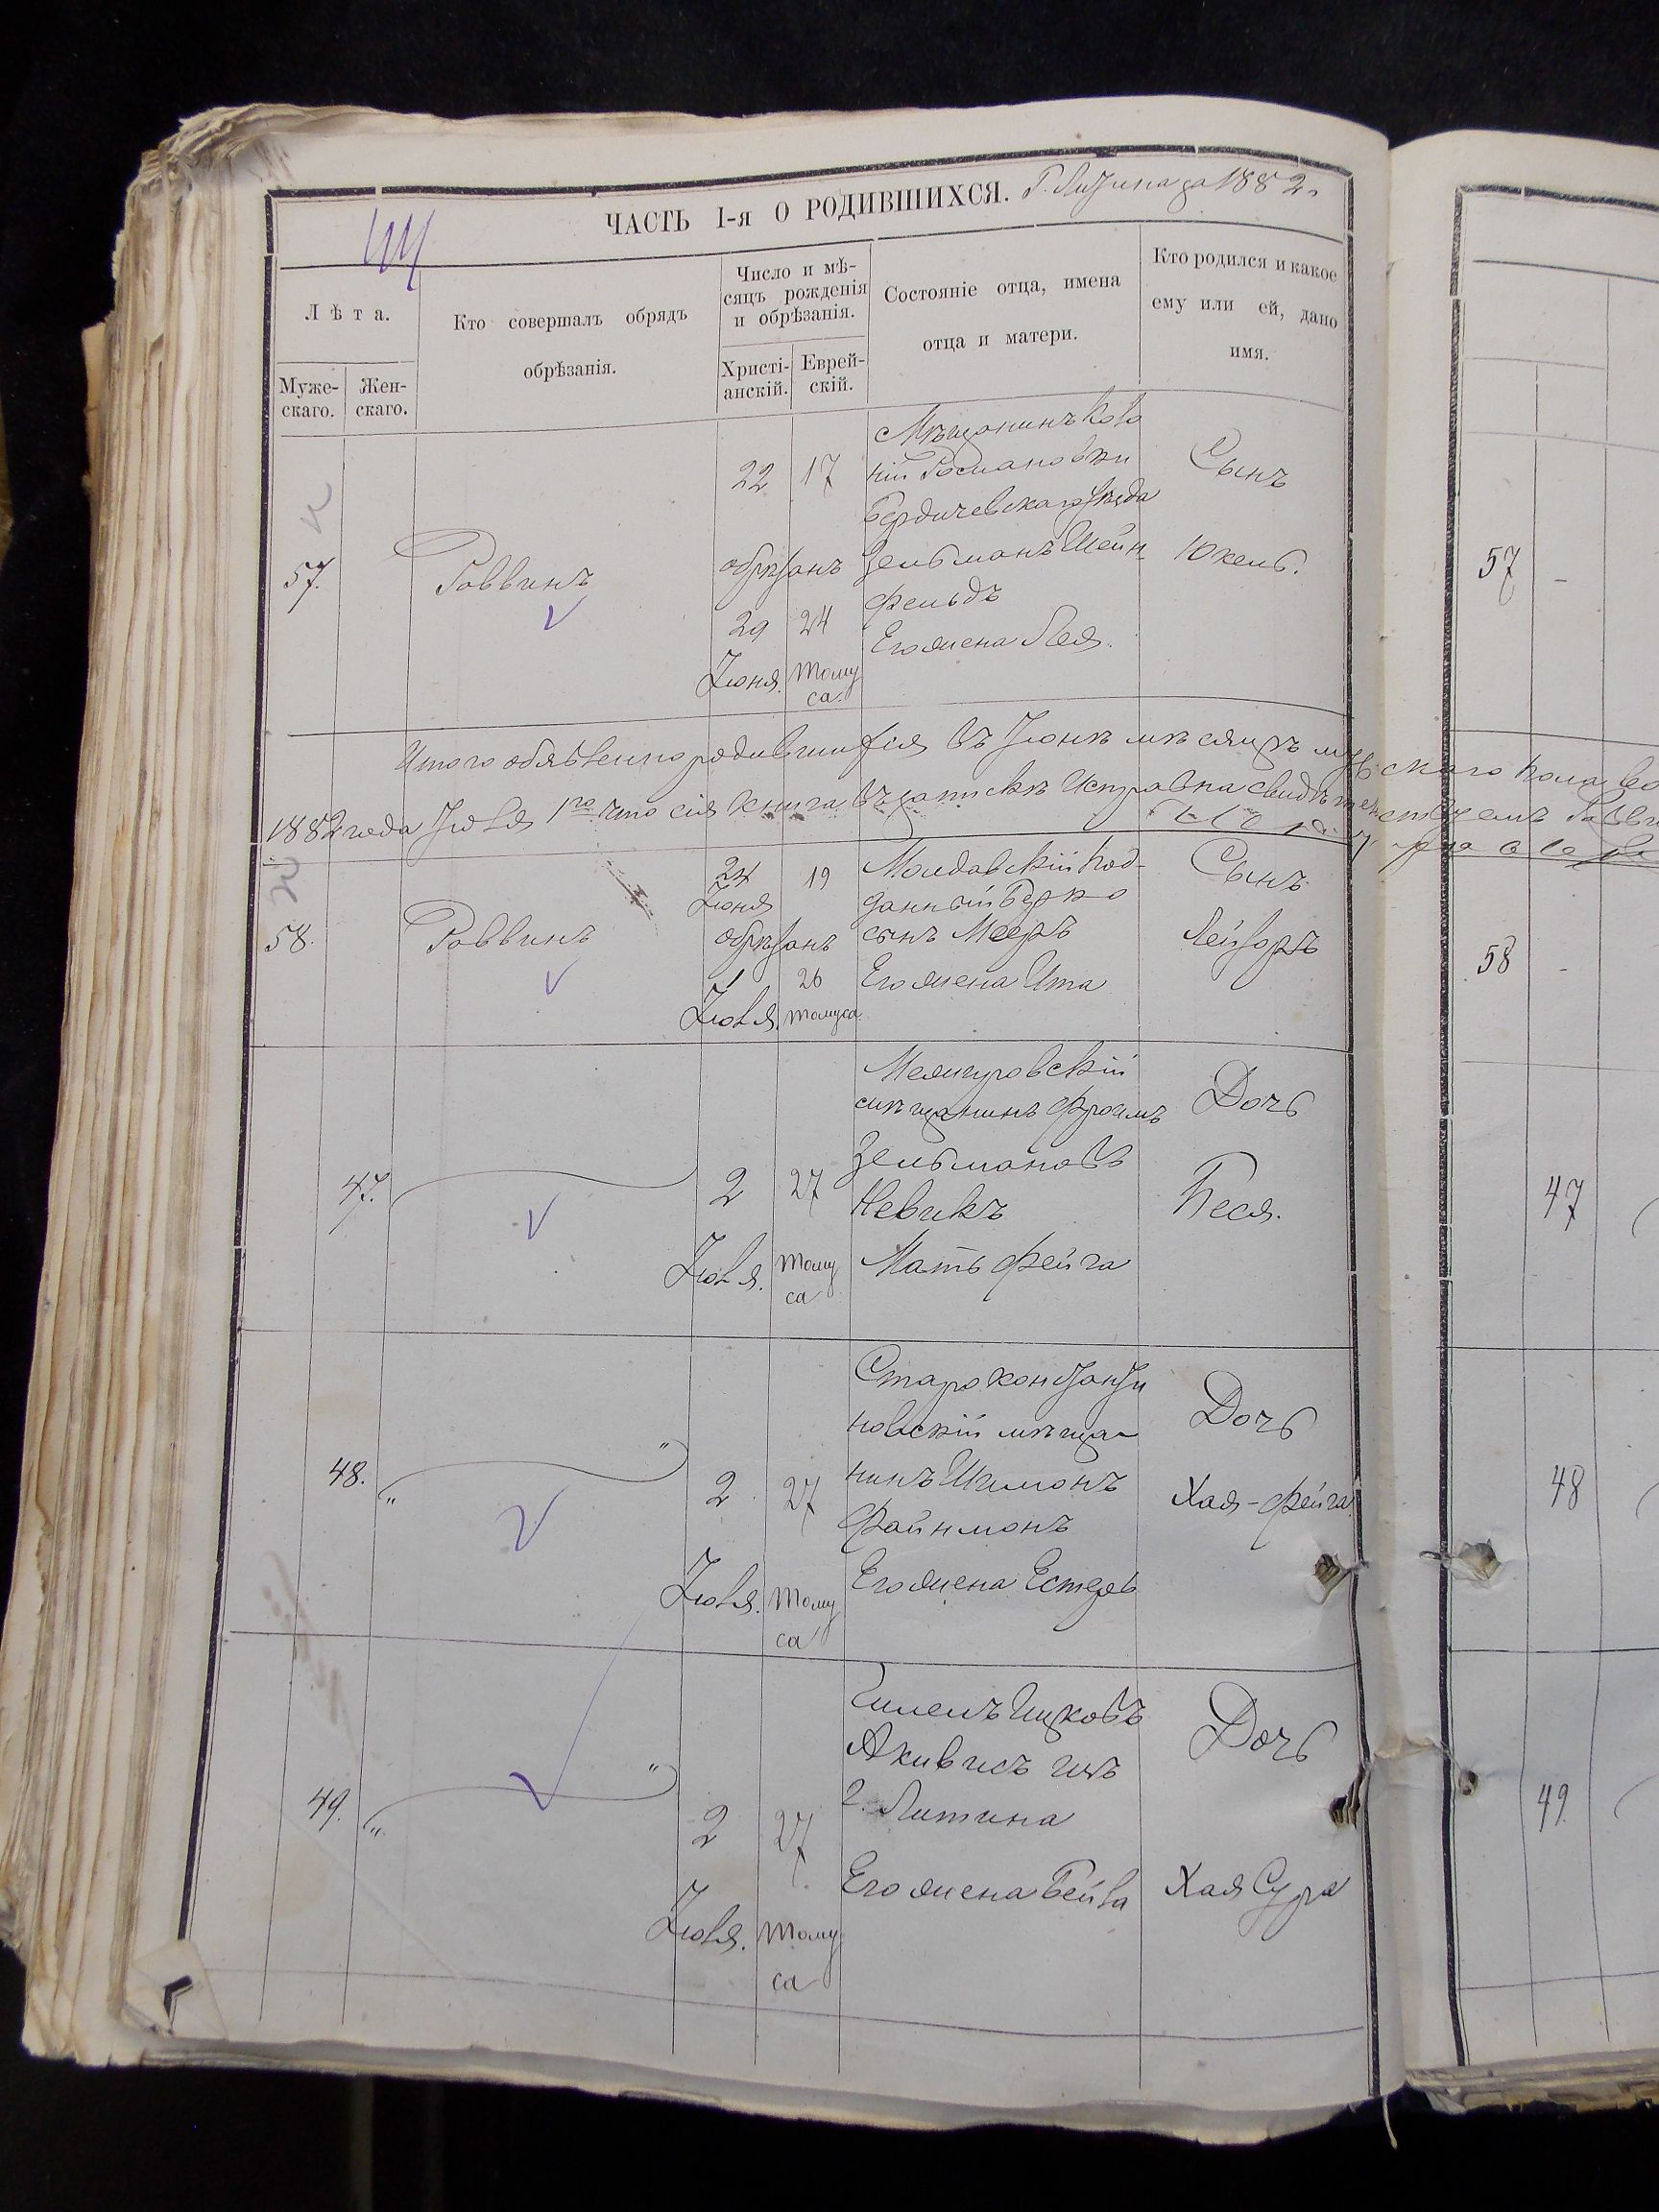 ЧАСТЬ I-я О РОДИВШИХСЯ. Г. Литина за 1882 г.
Лѣта.
Муже-
скаго.
Жен-
скаго.
Кто совершалъ обрядъ
обрѣзанія.
Число и мѣ-
сяцъ рожденія
и обрѣзанія.
Христі-
анскій.
Еврей-
скій.
Состояніе отца, имена
отца и матери.
Кто родился и какое
ему или ей, дано
имя.
57.
Раввинъ
22 17
обрѣзанъ
29 24
Іюня. Таму
са.
Мѣщанинъ
Романовки
Бердичевскаго уѣзда
Зельманъ Шейн-
фельдъ
Его жена Лея.
Сынъ
Юкель.
57 -
Итого объявленно родившихся въ Іюнѣ мѣсяцѣ мужскаго пола
1882 года Іюля 1го что сія книга въ запискѣ исправна свидѣтельствуемъ
58.
Раввинъ
24 19
Іюня
обрѣзанъ
1 26
Іюля. Тамуса
Молдавскій под-
данный Берко
сынъ Мееръ
Его жена Ита
Сынъ
Лейзоръ
58 -
47.
2 27
Іюля. Таму
са
мѣщанинъ Фроимъ
Зельмановъ
Невикъ
Мать Фейга
Дочь
Беся.
47
48. "
"
2 27
Іюля. Таму
са
Староконстанти
новскій мѣща-
нинъ Шимонъ
Файнманъ
Его жена Естеръ
Дочь
Хая-Фейга
48
49. "
"
2 27
Іюля. Таму
са
Гилелъ Ицковъ
Акивисъ изъ
г. Литина
Его жена Бейла
Дочь
Хая Сура
49.